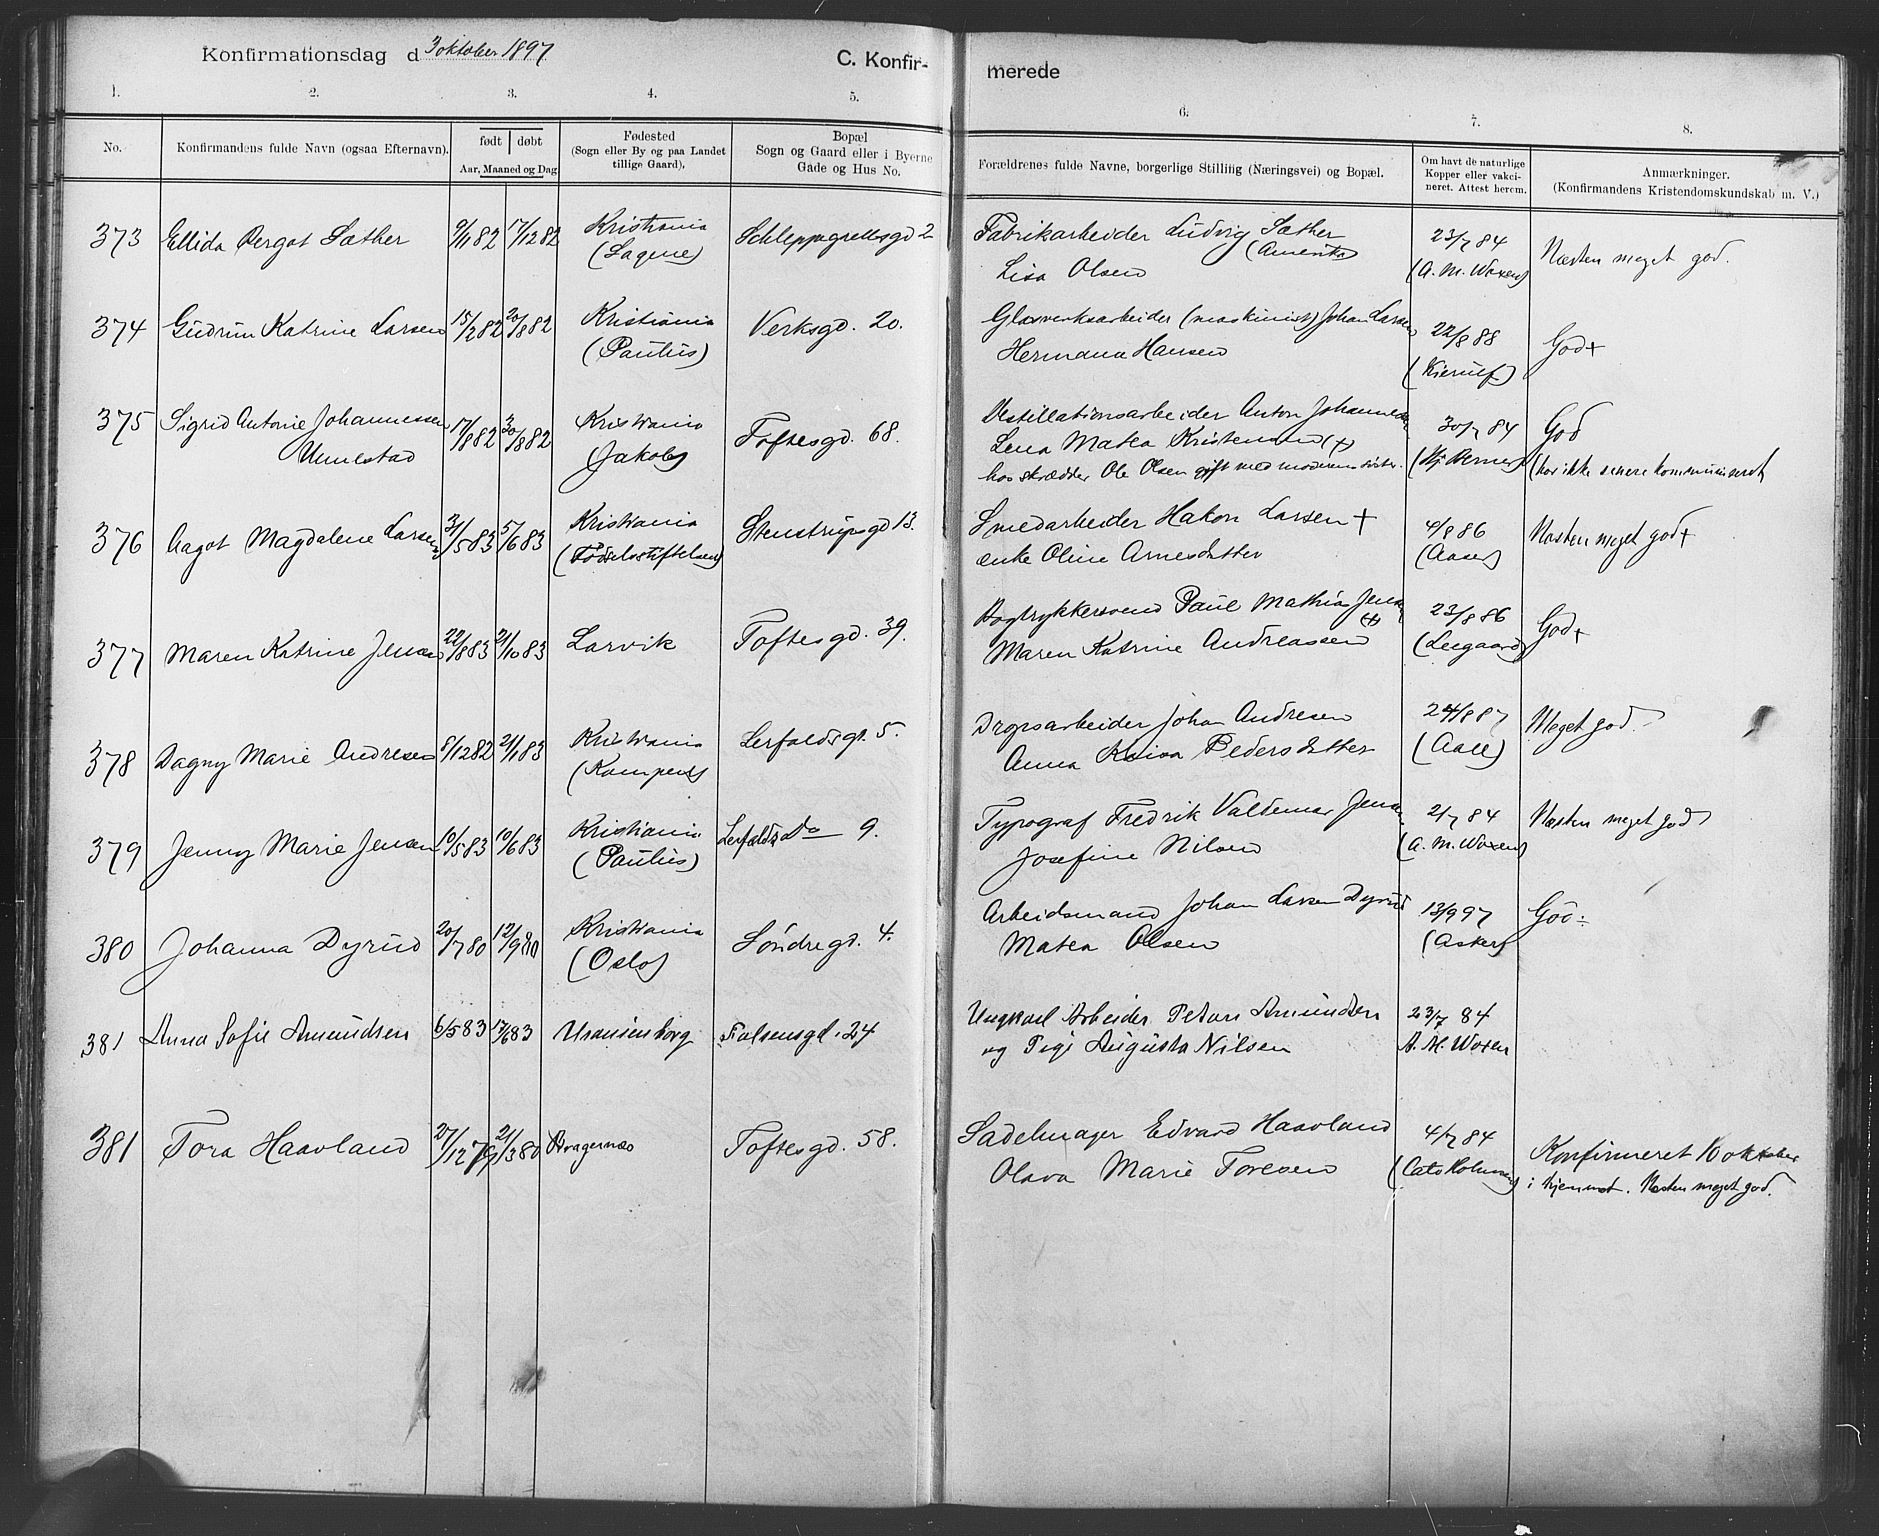 Konfirmationsdag d 3 oktober 1897
C. Konfir-
merede
1. 2. 3. 4. 5. 6. 7. 8.
No.
Konfirmandens fulde Navn (ogsaa Efternavn).
født døbt
Aar, Maaned og Dag
Fødested
(Sogn eller By og paa Landet
tillige Gaard),
Bopæl
Sogn og Gaard eller i Byerne
Gade og Hus No.
Forældrenes fulde Navne, borgerlige Stilling (Næringsvei) og Bopæl.
Om havt de naturlige
Kopper eller vakci-
neret. Attest herom.
Anmærkninger.
(Konfirmandens Kristendomskundskab m. V.)
373 Ellida Bergot Sæther 9/11 82 17/12 82 Kristiania Schleppegrellsgd 2 Fabrikarbeider Ludvig Sæther 23/7 84 Næsten meget god.
(Sagene) (Amerika)
Lisa Olsen (A. M. Woxen)
374 Gudrun Katrine Larsen 15/2 82 20/8 82 Kristiania Verksgd. 20. Glasverksarbeider (maskinist) Johan Larsen 22/8 88 God+
(Paulus) Hermana Hansen (Kierulf)
375 Sigrid Antonie Johannessen 17/8 82 30/8 82 Kristiania Toftesgd. 68. Destillationsarbeider Anton Johannessen 30/7 84 God
(Jakob) Lena Matea Kristensen (+)
hos skrædder Ole Olsen gift med moderens søster. (har ikke senere kommuniseret)
376 Aagot Magdalene Larsen 31/5 83 5/6 83 Kristiania Stenstrupsgd 13. Smedarbeider Hakon Larsen + 4/8 86 Næsten meget god+
(Fødselsstiftelsen) enke Oline Arnesdatter (Aase)
377 Maren Katrine Jensen 22/8 83 21/10 83 Larvik Toftesgd. 39. Bogtrykkersvend Paul Mathias Jensen 23/8 86 God+
(+)
Maren Katrine Andreassen (Leegaard)
378 Dagny Marie Andresen 8/12 82 21/1 83 Kristiania Lerfaldsgt. 5. Dropsarbeider Johan Andresen 24/8 87 Meget god
(Kampen) Anna Kaisa Pedersdatter (Aall)
379 Jenny Marie Jensen 10/5 83 10/6 83 Kristiania Lerfalds Do 9. Typograf Fredrik Valdemar Jensen 2/7 84 Næsten meget god
(Paulus) Josefine Nilsen (A. M. Woxen)
380 Johanna Dyrud 20/7 80 12/9 80 Kristiania Søndregd. 4. Arbeidsmand Johan Larsen Dyrud 13/9 97 God:
(Oslo) Matea Olsen (Asker)
381 Anna Sofie Amundsen 6/5 83 17/6 83 Uranienborg Falsensgd. 24 Ungkarl Arbeider Petter Amundsen 23/7 84
og Pige Augusta Nilsen A. M. Woxen
381 Tora Haavland 27/12 79 21/3 80 Bragernæs Toftesgd. 58. Sadelmager Edvard Haavland 4/7 84 Konfirmeret 10 oktober
Olava Marie Toresen (Cato Holmsen) i hjemmet. Næsten meget god.